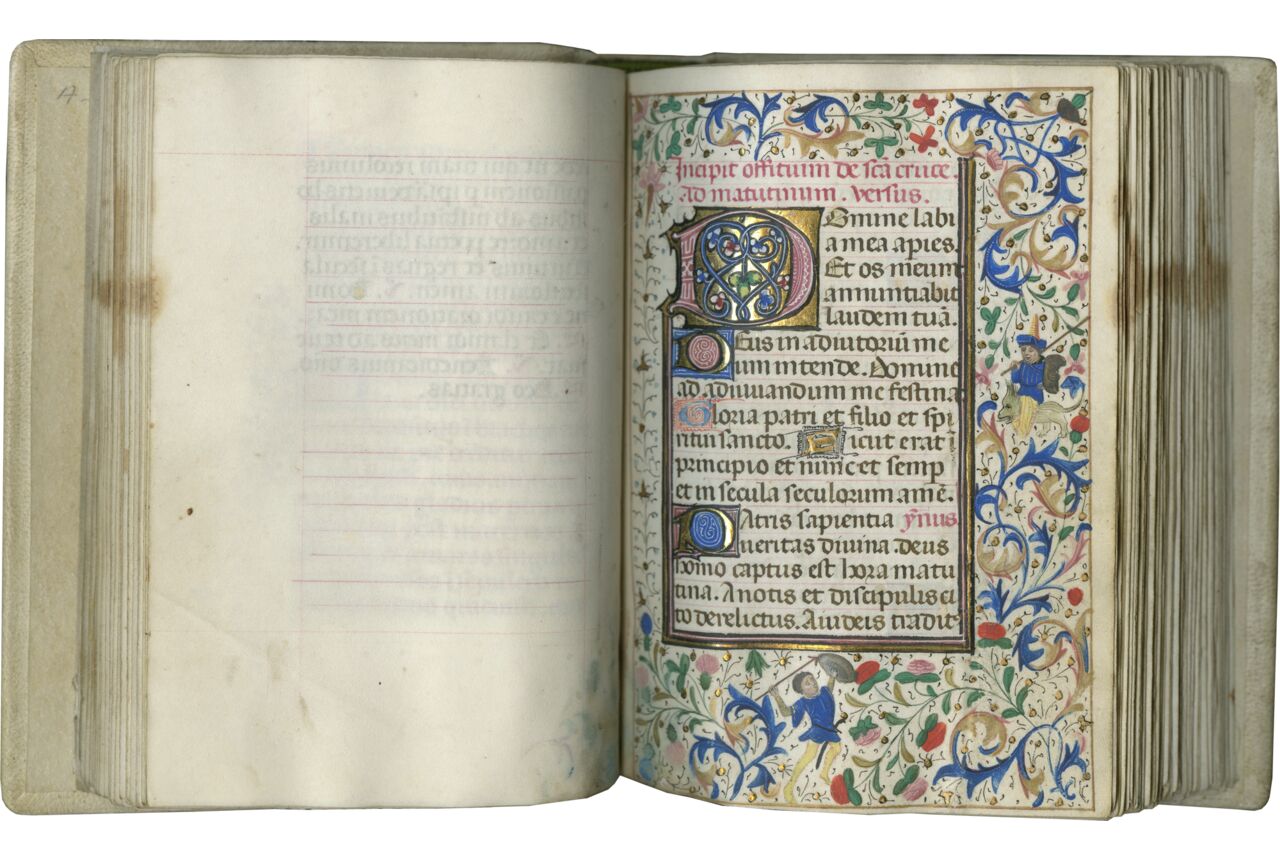 Incipit offitium de sc̄a cruce.
Ad matutinum. versus.
Domine labi
a mea apies.
Et os meum
annuntiabit
laudem tuā.
Deus in adiutoriū me
um intende. Domine
ad adiuuandum me festina
Gloria patri et filio et spi
ritui sancto. Sicut erat ī
principio et nunc et semp
et in secula seculorum amē.
Patris sapientia ỹnus.
ueritas diuina deus
homo captus est hora matu
tina. A notis et discipulis ci
to derelictus. A iudeis tradit